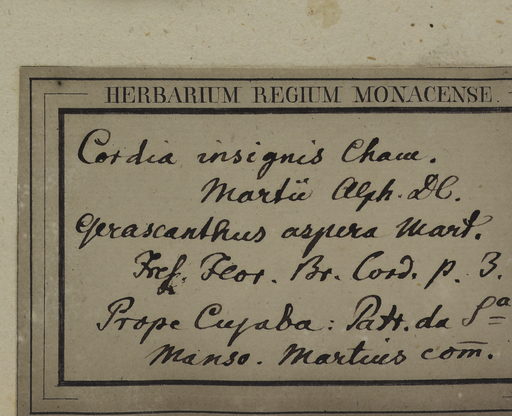 HERBARIUM REGIUM MONACENSE.
Cordia insignis Cham.
Martii Alph. DC.
Gerascanthus aspera Mart.
Fref. Flor. Br. Cord. p. 3.
Prope Cujaba: Patr. da Sª
Manso. Martius com̅.